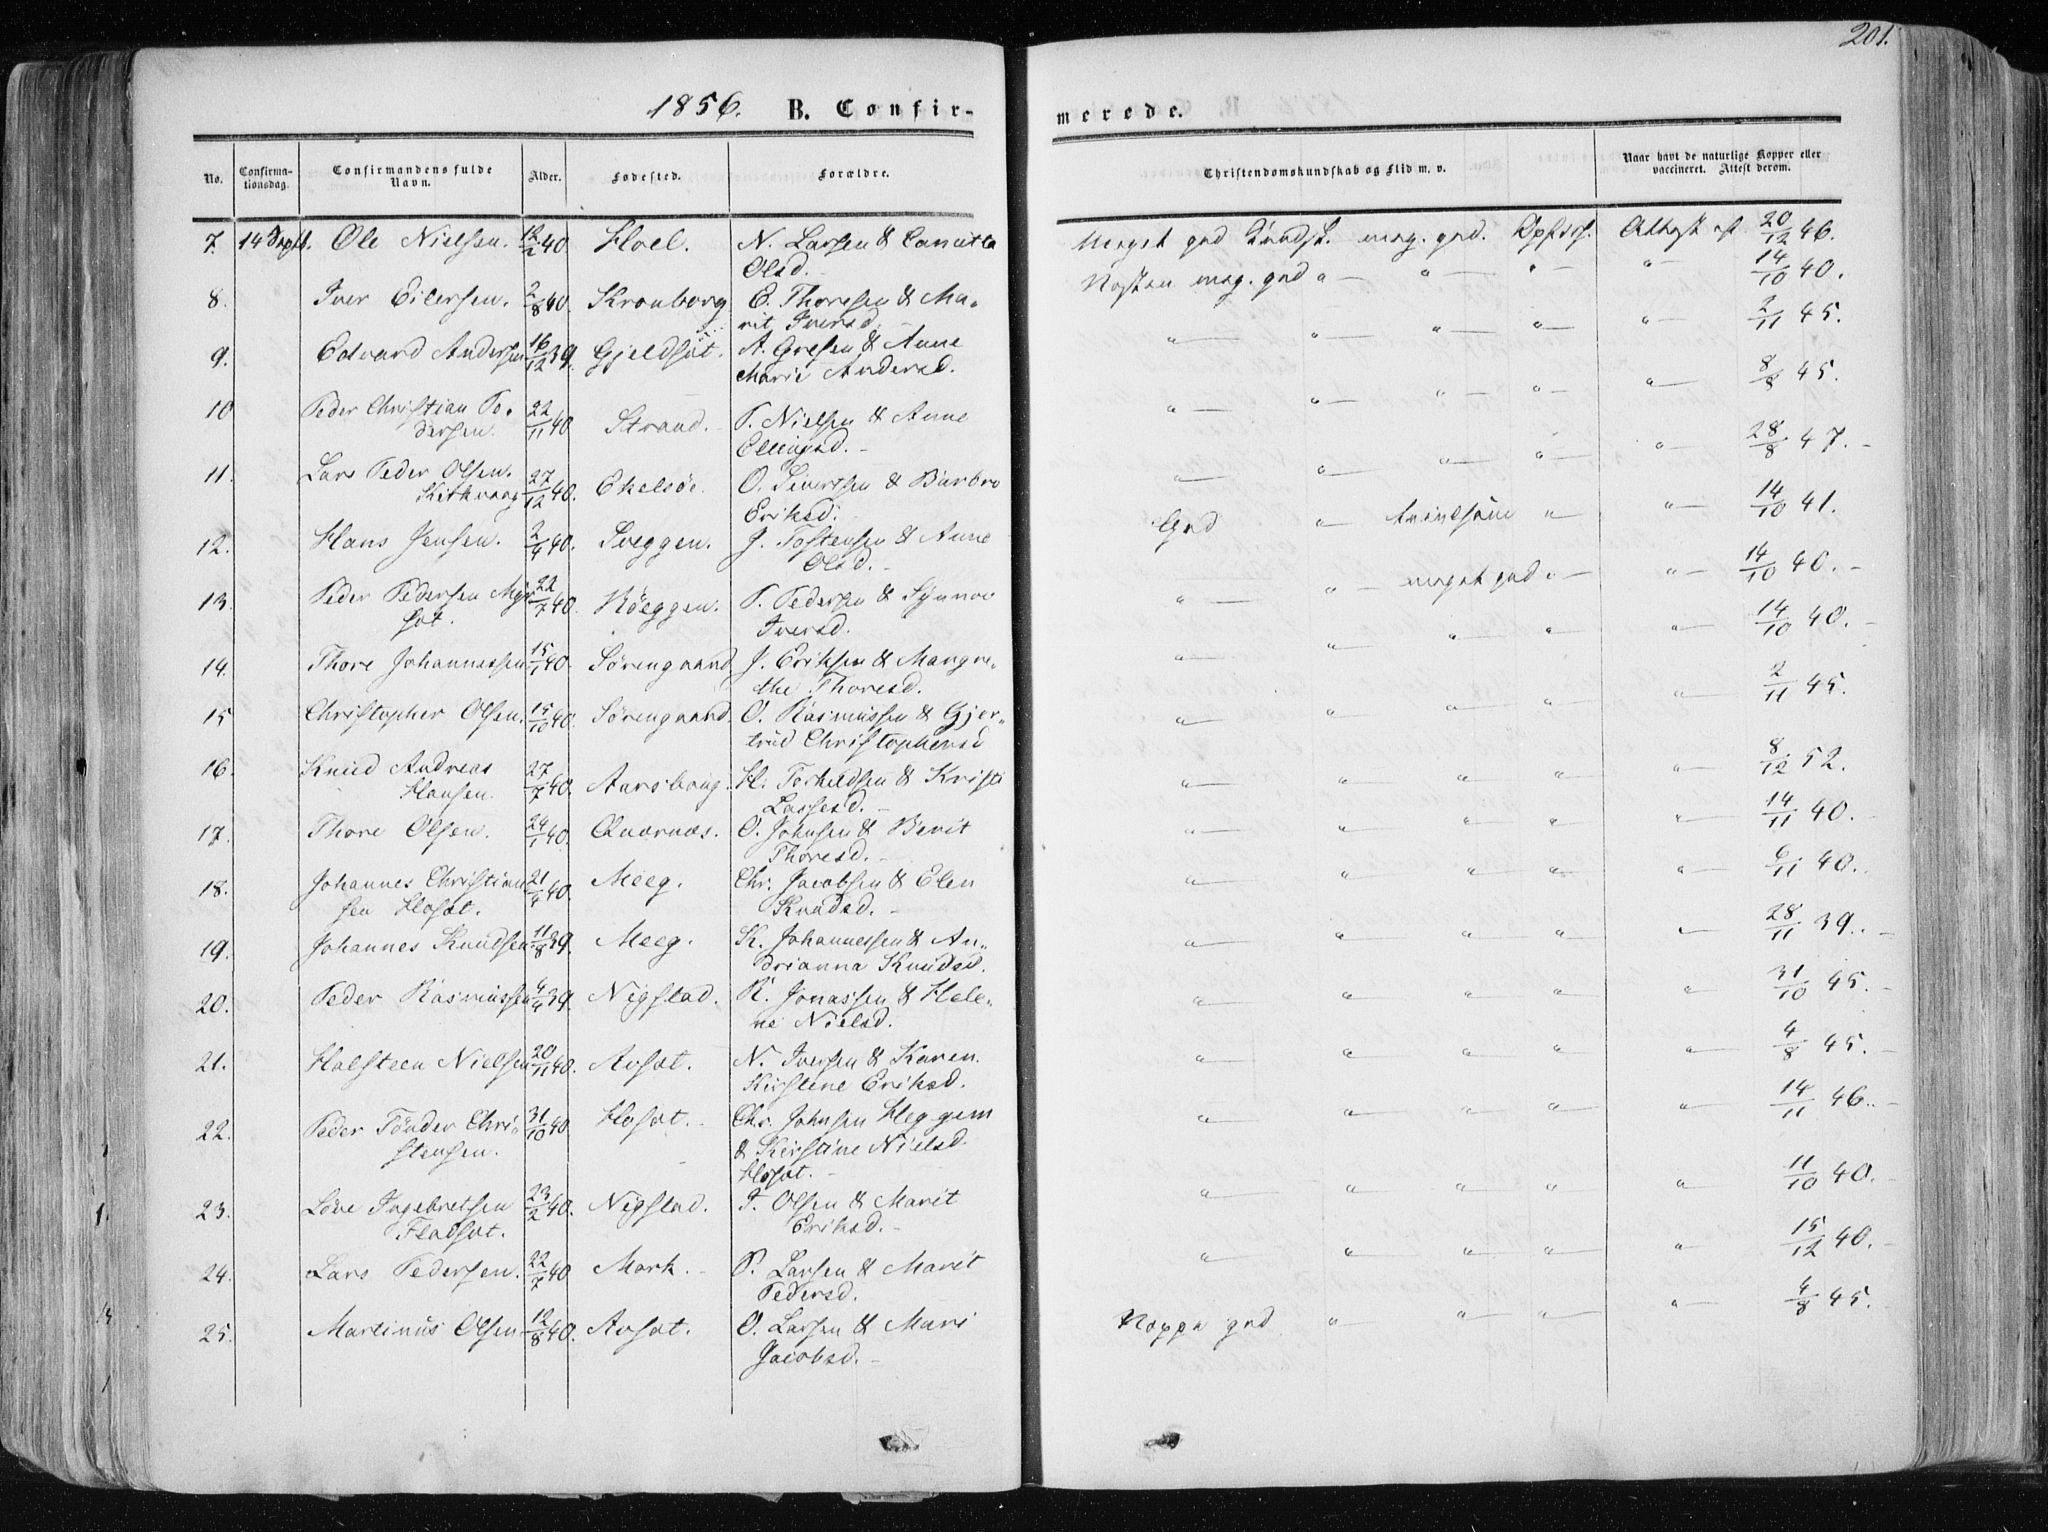 201.
1856. B. Confir-
merede.
No. Confirma-tionsdag. Confirmandens fulde Navn. Alder. Fødested. Forældre. Christendomskundskab og Flid m. v. Naar havt de naturlige Kopper eller vaccineret. Attest derom.
7. 14 Septb. Ole Nielsen. 40. Hoel. N. Larsen & Olsd. Meget god Kundsk. meg. god. Attest af 20/12 46.
8. Iver Eilersen. 2/8 40. Kronborg E. Thoresen & Ma-
rit Iversd. Næsten meg. god " — " — " — " — 14/10 40.
9. Edvard Andersen 16/12 39. Gjeldsæt. A. Gresen & Anne
Marie Andersd. " — " — " — " — " — 2/11 45.
10 Peder Christian Pe-
dersen. 22/11 40 Strand. P. Nielsen & Anne
Ellingsd. " — " — " — " — " — 8/8 45.
11. Lars Peder Olsen.
27/12 40. Ekelsöe. O. Siversen & Barbro
Eriksd. " — " — " — " — " — 28/8 47.
12. Hans Jensen. 2/4 40. Sveggen. J. Tostensen & Anne
Olsd. God " — " — " — 14/10 41.
13. Peder Pedersen Myr-
sæt. 22/7 40. Röeggen. P. Pedersen & Synnove
Iversd. " — " — meget god " — " — 14/10 40.
14. Thore Johannessen 15/1 40. Sörengaard J. Eriksen & Mangre-
the Thoresd. " — " — " — " — " — 14/10 40.
15 Christopher Olsen. 15/10 40. Sörengaard. O. Rasmussen & Gjer-
trud Christophersd " — " — " — " — " — 2/11 45.
16. Knud Andreas
Hansen. 27/7 40. Aarsboug. H. Torkildsen & Kristi
Lassesd. " — " — " — " — " — 8/12 52.
17. Thore Olsen. 24/1 40. Qværnæs. O. Johnsen & Berit
Thoresd. " — " — " — " — " — 14/11 40.
18. Johannes Christian-
sen Hosæt. 21/4 40. Meeg. Chr. Jacobsen & Elen
Knudsd. " — " — " — " — " — 6/11 40.
19. Johannes Knudsen. 11/8 39. Meeg. K. Johannessen & An-
drianna Knudsd. " — " — " — " — " — 28/11 39.
20. Peder Rasmussen 4/4 39. Nigstad. R. Jonassen & Hele-
ne Nielsd. " — " — " — " — " — 31/10 45.
21. Halsteen Nielsen 20/11 40. Aasæt. N. Iversen & Karen
Kirstine Eriksd. " — " — " — " — " — 4/8 45.
22. Peder Tönder Chri-
stensen. 31/10 40. Hosæt. Chr. Johnsen Heggem
& Kirstine Nielsd.
Hosæt. " — " — " — " — " — 14/11 46.
23. Löve Ingebretsen
Fladsæt. 23/2 40. Nigstad. I. Olsen & Marit
Eriksd. " — " — " — " — " — 11/10 40.
24. Lars Pedersen. 22/7 40 Mork. P. Larsen & Marit
Pedersd. " — " — " — " — " — 15/12 40.
25. Martinus Olsen 12/8 40. Aasæt. O. Larsen & Mari
Jacobsd. Noppe god " — " — " — " — 4/8 45.